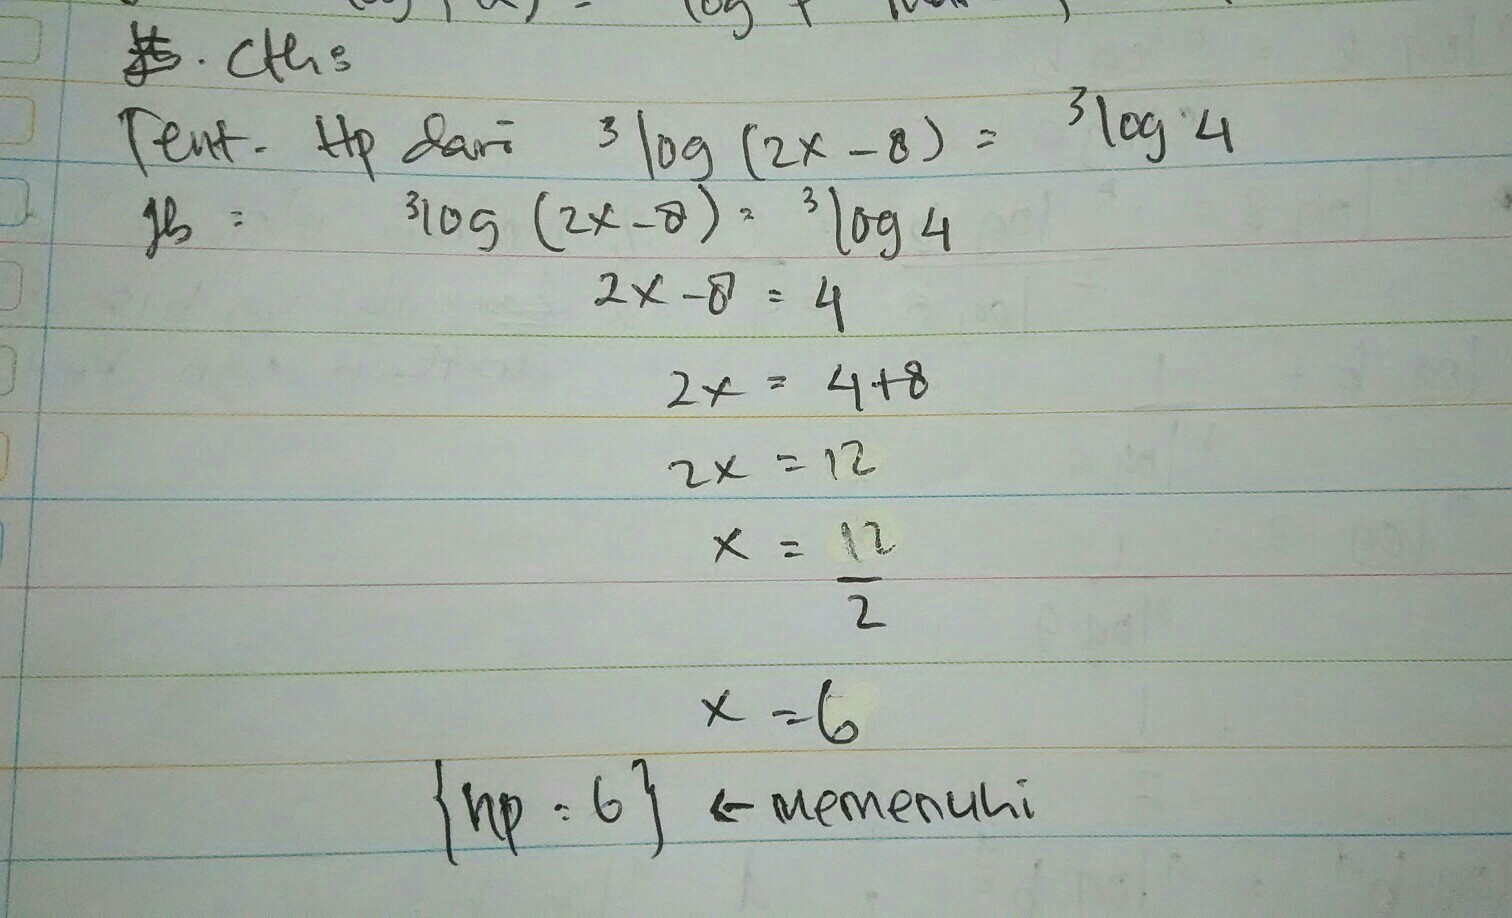 Cths
Tent. Hp dari ³log (2x-8) = ³log 4
Jb = ³log (2x-8) = ³log 4
2x-8 = 4
2x = 4+8
2x = 12
x = 12
2
x = 6
{hp = 6} ← memenuhi